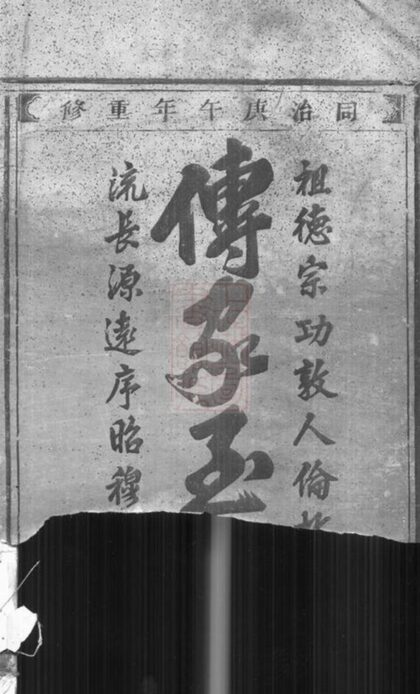 同治庚午年重修
祖德宗功敦人倫
傳家玉
流長源遠序昭穆